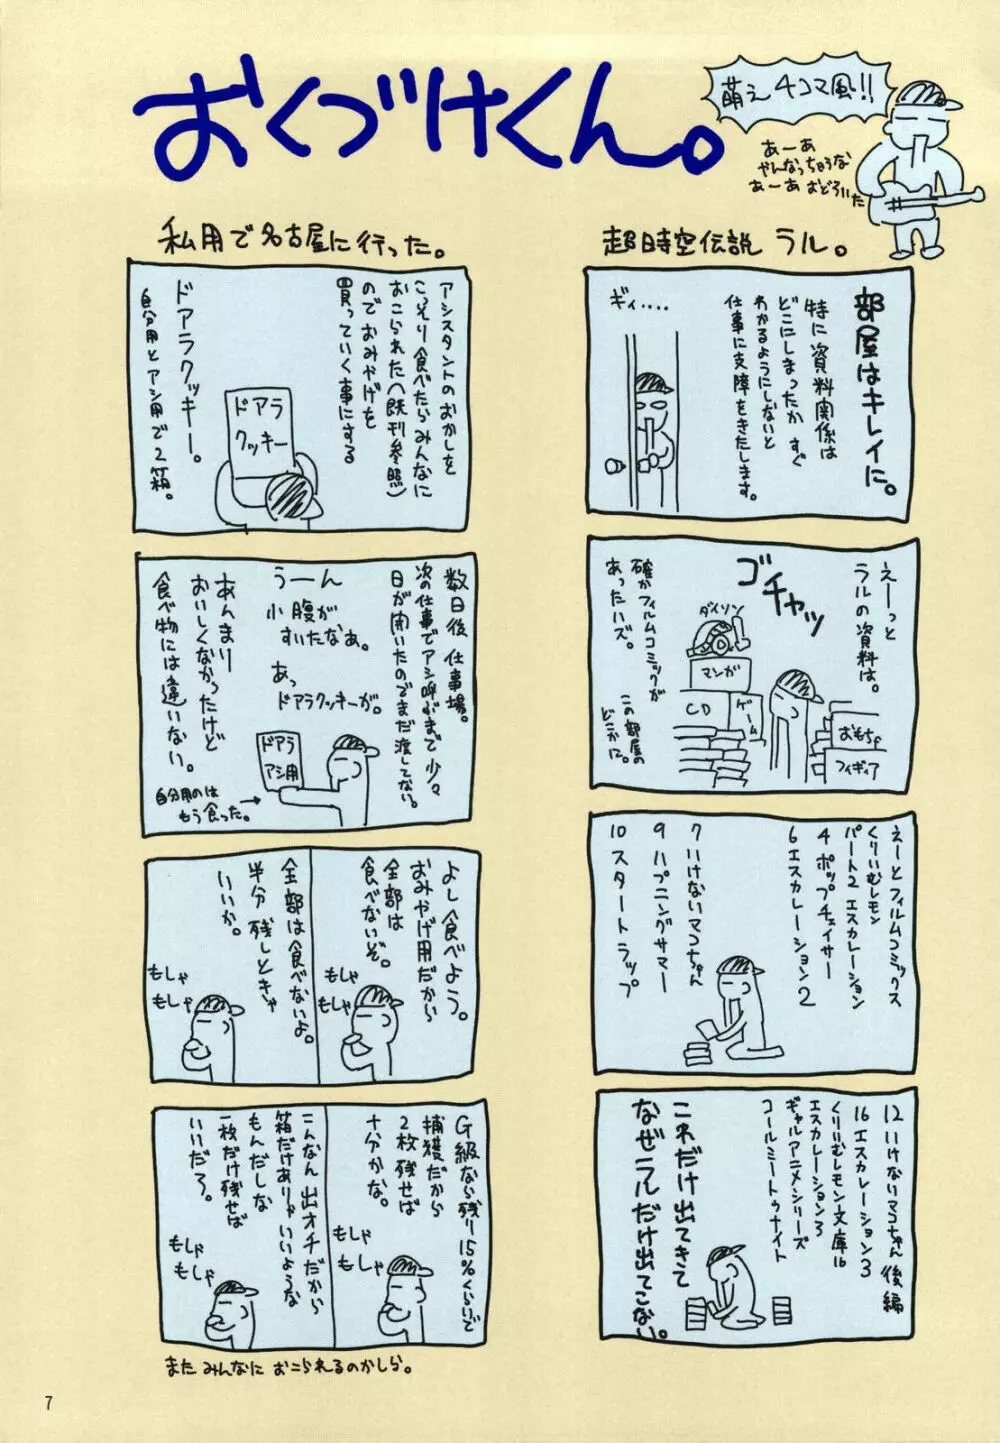 おくづけくん。
萌え4コマ風!!
あーあ
やんなっちゃうな
あーあ おどろいた
超時空伝説 ラル。
部屋はキレイに。
特に資料関係は
どこにしまったか すぐ
わかるようにしないと
仕事に支障をきたします。
ギィ....
えーっと
ラルの資料は。
ゴチャッ
ダイソン
マンガ
CD
ゲーム
おもちゃ
フィギュア
確かフィルムコミックが
あったハズ。
この部屋の
どこかに。
えーとフィルムコミックス
くりいむレモン
パート2 エスカレーション
4 ポップチェイサー
6 エスカレーション2
7 いけないマコちゃん
9 ハプニングサマー
10 スタートラップ
12 いけないマコちゃん 後編
16 エスカレーション3
くりいむレモン文庫16
エスカレーション3
ギャルアニメシリーズ
コールミートゥナイト
これだけ出てきて
なぜラルだけ出てこない。
私用で名古屋に行った。
アシスタントのおかしを
こっそり食べたらみんなに
おこられた(既刊参照)
のでおみやげを
買っていく事にする
ドアラ
クッキー
ドアラクッキー。
自分用とアシ用で2箱。
数日後 仕事場。
次の仕事でアシ呼ぶまで少々
日が開いたのでまだ渡してない。
うーん
小腹が
すいたなぁ。
あっ
ドアラクッキーが。
ドアラ
アシ用
あんまり
おいしくなかったけど
食べ物には違いない。
自分用のは
もう食った。
よし食べよう。
おみやげ用だから
全部は
食べないぞ。
もしゃ
もしゃ
全部は食べないよ。
半分 残しときゃ
いいか。
もしゃ
もしゃ
G級なら残り15%くらいで
捕獲だから
2枚残せば
十分かな。
もしゃ
もしゃ
こんなん 出オチだから
箱だけありゃいいような
もんだしな
一枚だけ残せば
いいだろ。
もしゃ
もしゃ
また みんなに おこられるのかしら。
7